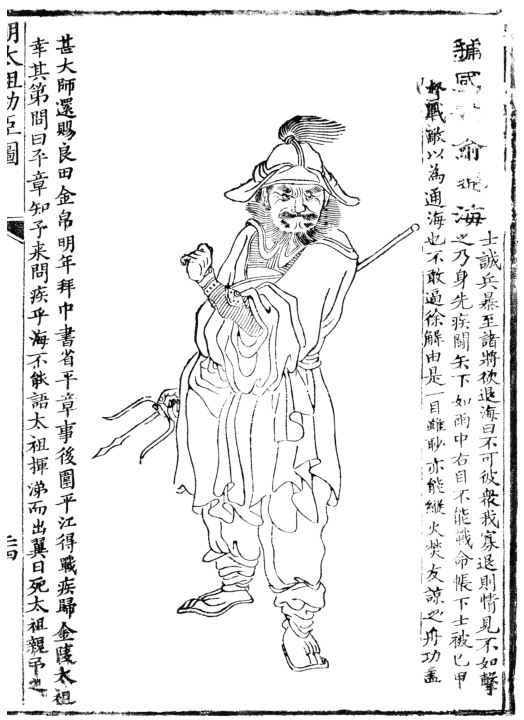 國 俞通海
士誠兵暴至諸將欲退海曰不可彼衆我寡退則情見不如擊
之乃身先疾鬭矢下如雨中右目不能戰命帳下士被已甲
戰敵以為通海也不敢逼徐解由是一目雖眇亦能縱火焚友諒之舟功盖
甚大師還賜良田金帛明年拜中書省平章事後圍平江得戰疾歸金陵太祖
幸其第問曰平章知予來問疾乎海不能語太祖揮涕而出翼日死太祖親弔
明太祖功臣圖
二四